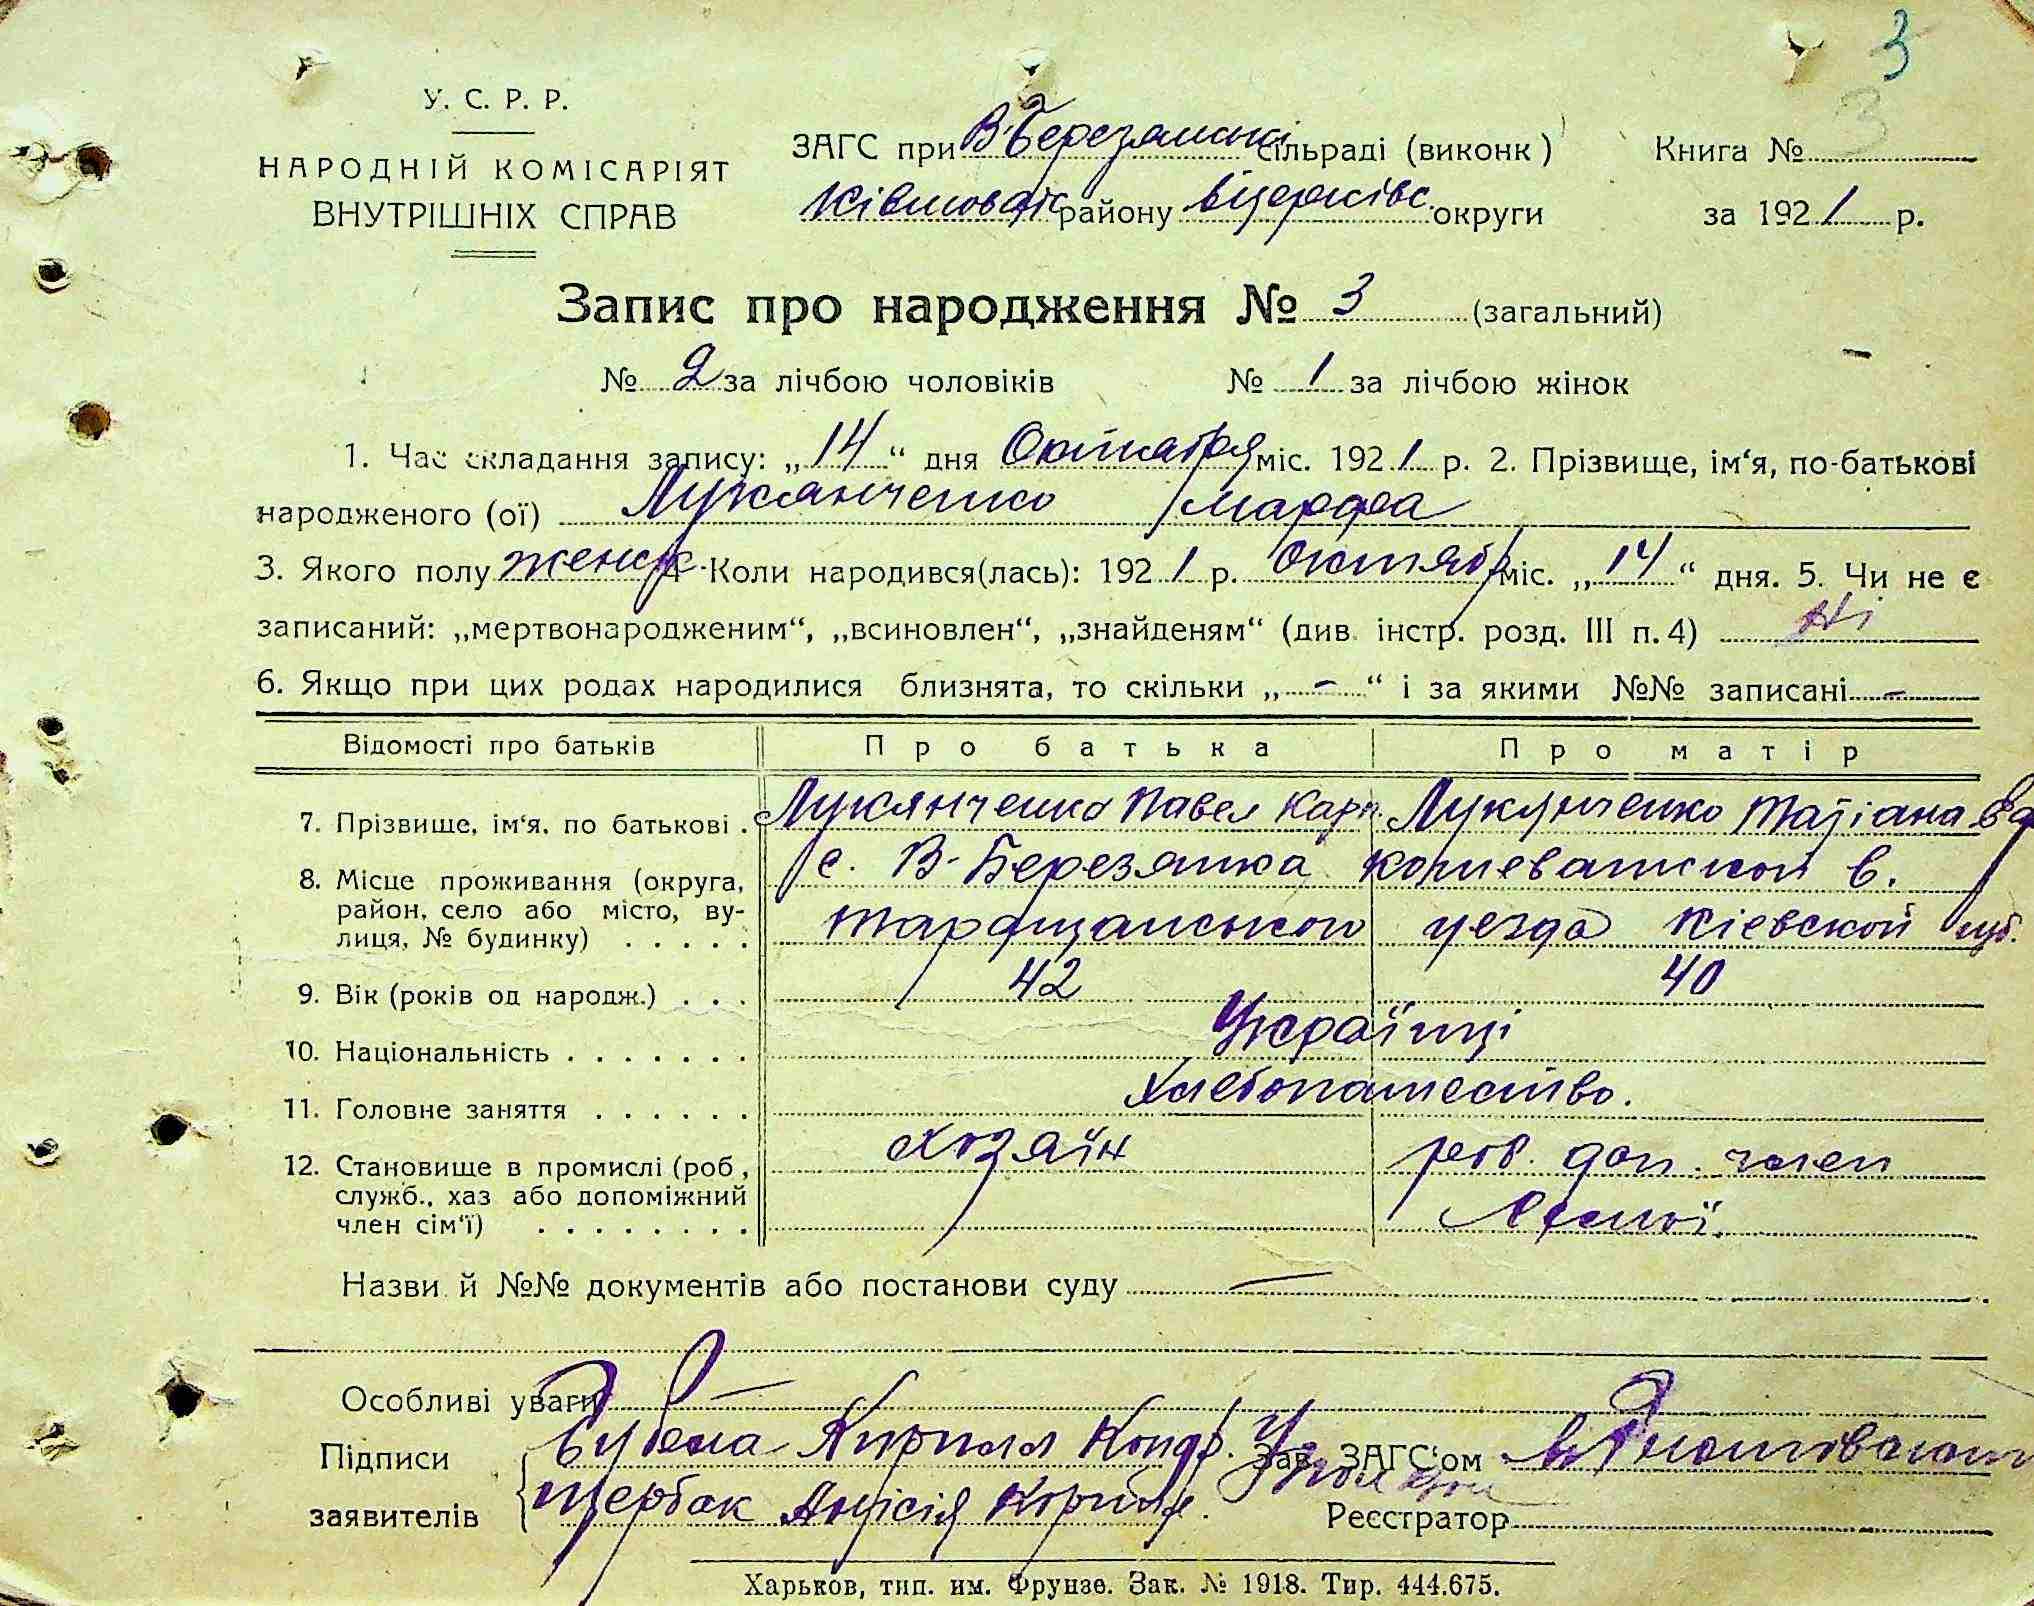 3
У. С. Р. Р.
НАРОДНІЙ КОМІСАРІЯТ
ВНУТРІШНІХ СПРАВ
ЗАГС при В-Березянські сільраді (виконк) Книга № 3
району округи за 1921 р.
Запис про народження № 3 (загальний)
№ 2 за лічбою чоловіків № 1 за лічбою жінок
1. Час складання запису: „14“ дня Октября міс. 1921 р. 2. Прізвище, ім‘я, по-батькові
народженого (ої) Лукянченко Марфа
3. Якого полу женск. 4 Коли народився(лась): 1921 р. Октябр міс. „14“ дня. 5. Чи не є
записаний: „мертвонародженим“, „всиновлен“, „знайденям“ (див. інстр. розд. III п. 4) Ні
6. Якщо при цих родах народилися близнята, то скільки „-“ і за якими №№ записані -
Відомості про батьків Про батька Про матір
7. Прізвище, ім‘я, по батькові . Лукянченко Павел Карп. Лукянченко Татіана
8. Місце проживання (округа, с. В-Березянка в.
район, село або місто, ву-
лиця, № будинку) . . . . . Таращанского уезда Кіевской губ.
9. Вік (років од народж.) . . . 42 40
10. Національність . . . . . . . Українці
11. Головне заняття . . . . . . Хлебопашество.
12. Становище в промислі (роб., Хозяїн роб. доп. член
служб., хаз або допоміжний
член сім‘ї) . . . . . . . .
Назви й №№ документів або постанови суду —
Особливі уваги
Підписи Кирилл Кондр. Зав. ЗАГС‘ом
заявителів Щербак Реєстратор
Харьков, тип. им. Фрунзе. Зак. № 1918. Тир. 444.675.